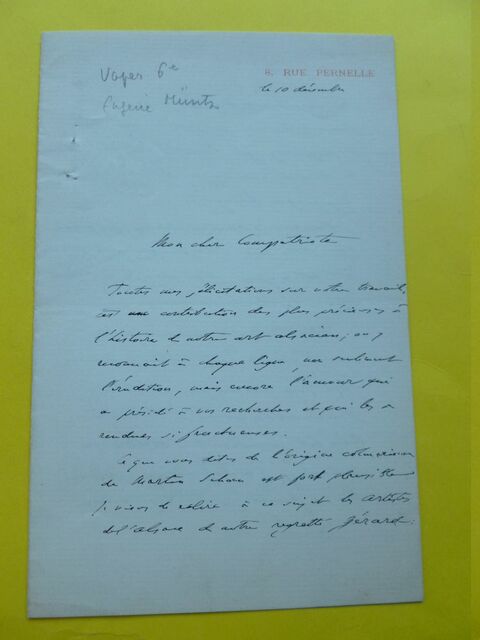 8, RUE PERNELLE
le 10 décembre
Eugène Müntz
Mon cher Compatriote
Toutes mes félicitations sur votre travail,
contribution des plus précieuses à
l'histoire de notre art alsacien; on y
reconnaît à chaque ligne, non seulement
l'érudition, mais encore l'amour qui
a présidé à vos recherches et qui les a
rendues si fructueuses.
Ce que vous dites de l'origine colmarienne
de Martin Schön est fort plausible
Je viens de relire à ce sujet les Artistes
de l'Alsace de notre regretté Gérard: